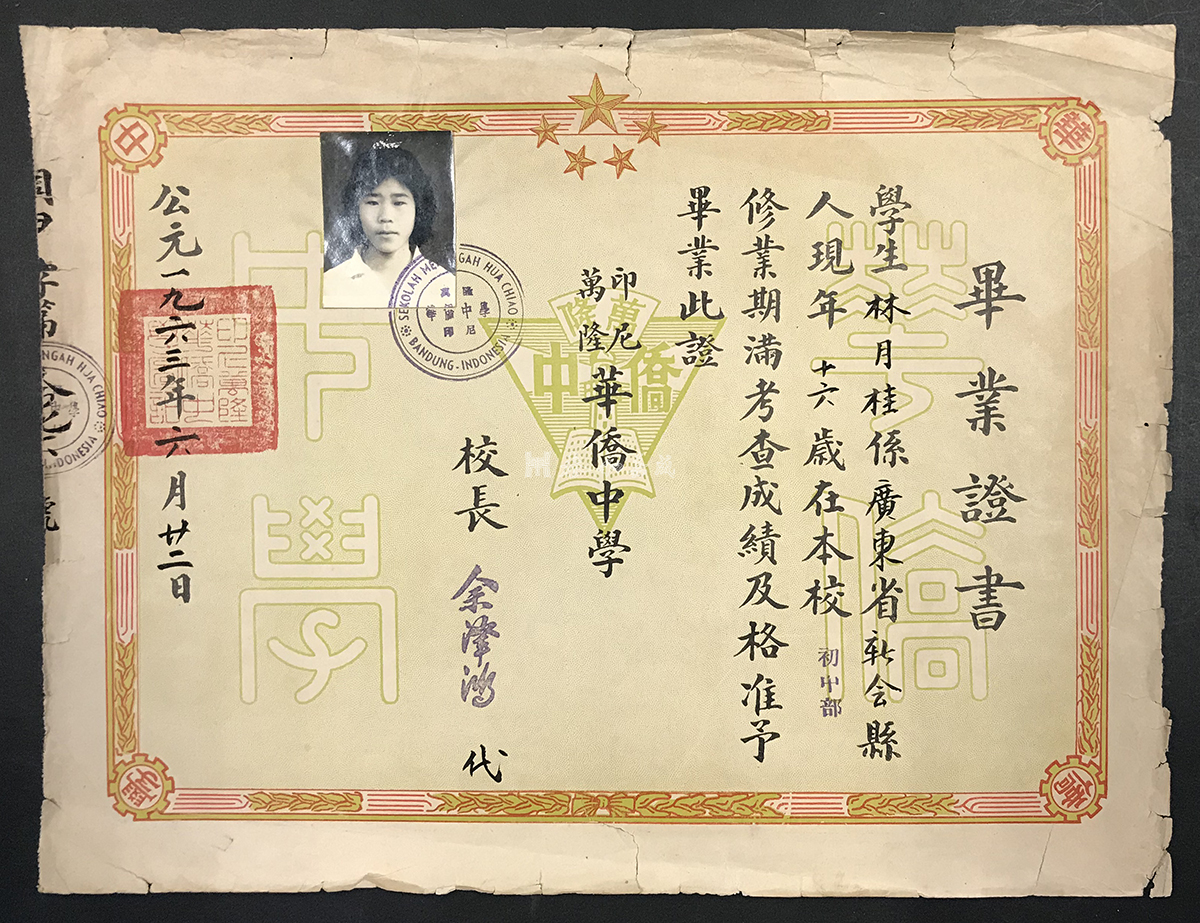 畢業證書
學生林月桂係廣東省新会縣
人現年十六歲在本校初中部
修業期滿考查成績及格准予
畢業此證
印尼
萬隆
華僑中學
校長 余澤鴻 代
公元一九六三年六月廿二日
萬隆
僑中
華僑
中學
華
僑
中
學
SEKOLAH MENENGAH HUA CHIAO
BANDUNG-INDONESIA
NGAH HUA CHIAO
INDONESIA
號